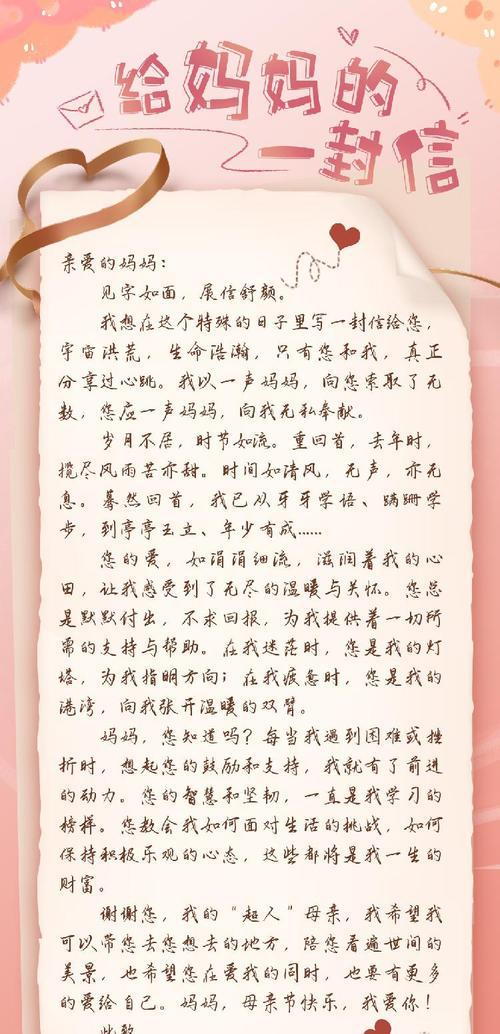 给妈妈的
一封信
亲爱的妈妈：
见字如面，展信舒颜。
我想在这个特殊的日子里写一封信给您，
宇宙洪荒，生命浩瀚，只有您和我，真正
分享过心跳。我以一声妈妈，向您索取了无
数，您应一声妈妈，向我无私奉献。
岁月不居，时节如流。重回首，去年时，
揽尽风雨苦亦甜。时间如清风，无声，亦无
息。蓦然回首，我已从牙牙学语、蹒跚学
步，到亭亭玉立、年少有成……
您的爱，如涓涓细流，滋润着我的心
田，让我感受到了无尽的温暖与关怀。您总
是默默付出，不求回报，为我提供着一切所
需的支持与帮助。在我迷茫时，您是我的灯
塔，为我指明方向；在我疲惫时，您是我的
港湾，向我张开温暖的双臂。
妈妈，您知道吗？每当我遇到困难或挫
折时，想起您的鼓励和支持，我就有了前进
的动力。您的智慧和坚韧，一直是我学习的
榜样。您教会我如何面对生活的挑战，如何
保持积极乐观的心态，这些都将是我一生的
财富。
谢谢您，我的“超人”母亲，我希望我
可以带您去您想去的地方，陪您看遍世间的
美景，也希望您在爱我的同时，也要有更多
的爱给自己。妈妈，母亲节快乐，我爱你！
此致